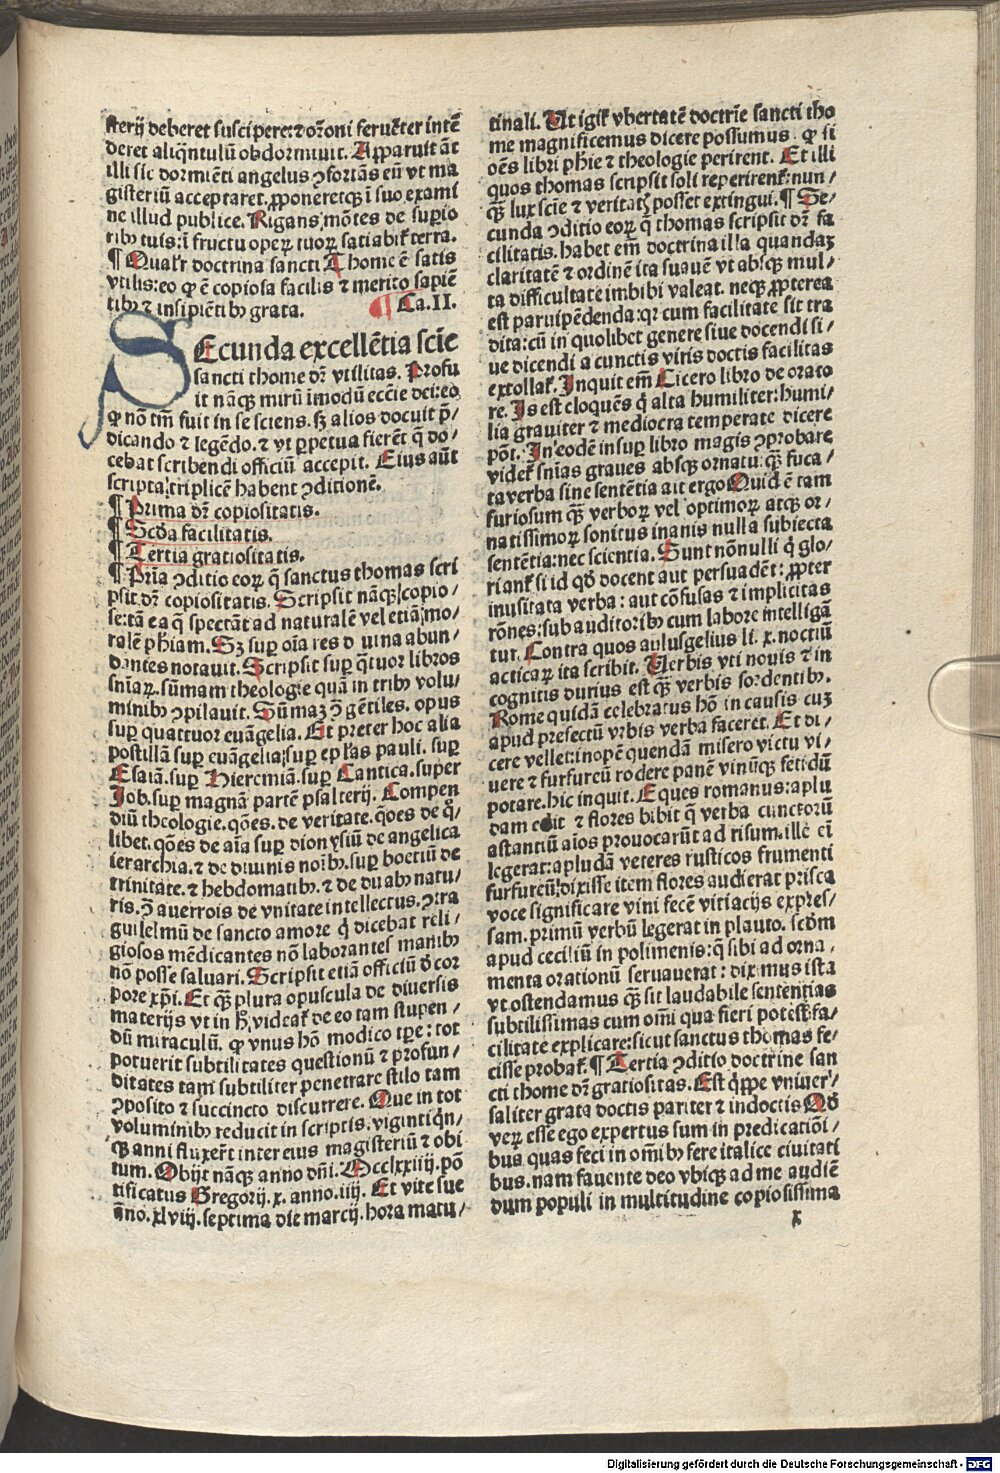 sterij deberet suscipere: ⁊ oꝛõni feruẽter intẽ
deret aliq̃ntulũ obdormiuit. Apparuit ãt
illi sic dormiẽti angelus ↄfortãs eũ vt ma
gisteriũ acceptaret. ꝓponeretqꝫ ĩ suo exami
ne illud publice. Rigans mõtes de supio
ribꝫ tuis: ĩ fructu opeꝝ tuoꝝ satiabit̃ terra.
¶ Qualr̃ doctrina sancti Thome ẽ satis
vtilis: eo ꝙ ẽ copiosa facilis ⁊ merito sapiẽ
tibꝫ ⁊ insipiẽtibꝫ grata. ¶ Ca. II.
SEcunda excellẽtia scĩe
sancti thome dꝛ̃ vtilitas. Profu
it nãqꝫ mirũ ĩmodũ ecc̃ie dei: eo
ꝙ nõ tm̃ fuit in se sciens. sꝫ alios docuit p̃/
dicando ⁊ legẽdo. ⁊ vt ꝑpetua fierẽt q̃ do/
cebat scribendi officiũ accepit. Eius aũt
scripta triplicẽ habent ↄditionẽ.
¶ Prima dꝛ̃ copiositatis.
¶ Scḋa facilitatis.
¶ Tertia gratiositatis.
¶ Pr̃ia ↄditio eoꝝ q̃ sanctus thomas scri
psit. dꝛ̃ copiositatis. Scripsit nãqꝫ copio/
se: tã ea q̃ spectãt ad naturalẽ vel etiã mo/
ralẽ phĩam. Sꝫ suꝑ oĩa res diuina abun/
dantes notauit. Scripsit suꝑ q̃tuor libros
snĩaꝝ. sũmam theologie quã in tribꝫ volu/
minibꝫ ↄpilauit. Sũmaꝫ ↄ̃ gẽtiles. opus
suꝑ quattuor euãgelia. Et preter hoc alia
postillã suꝑ euãgelia: suꝑ ep̃las pauli. suꝑ
Esaiã. suꝑ Hieremiã. suꝑ Cantica. super
Job. suꝑ magnã partẽ psalterij. Compen
diũ theologie. q̃ões. de veritate. q̃oes de q̊/
libet. q̃oes de aĩa suꝑ dionysiũ de angelica
ierarchia. ⁊ de diuinis noĩbꝫ. suꝑ boetiũ de
trinitate. ⁊ hebdomatibꝫ. ⁊ de duabꝫ natu/
ris. ↄ̃ auerrois de vnitate intellectus. ↄtra
guilelmũ de sancto amore q̇ dicebat reli/
giosos mẽdicantes nõ laborantes manibꝫ
nõ posse saluari. Scripsit etiã officiũ ḋ cor
pore xp̃i. Et qꝫ̃ plura opuscula de diuersis
materijs vt in h̃ videat̃ de eo tam stupen/
dũ miraculũ. ꝙ vnus hõ modico tꝑe: tot
potuerit subtilitates questionũ ⁊ profun/
ditates tam subtiliter penetrare stilo tam
ↄposito ⁊ succincto discurrere. Que in tot
voluminibꝫ reducit in scriptis. vigintiqn̄/
qꝫ anni fluxer̃t inter eius magisteriũ ⁊ obi
tum. Obijt nãqꝫ anno dñi. Mcclxxiiij. põ
tificatus Gregorij. x. anno. iiij. Et vite sue
ãno. xlviij. septima die marcij. hora matu/
tinali. Ut igit̃ vbertatẽ doctrĩe sancti tho
me magnificemus dicere possumus. ꝙ si
oẽs libri phĩe ⁊ theologie perirent. Et illi
quos thomas scripsit soli reperirent̃: nun/
qꝫ̃ lux scĩe ⁊ veritatꝭ posset extingui. ¶ Se/
cunda ↄditio eoꝝ q̃ thomas scripsit dꝛ̃ fa
cilitatis. habet em̃ doctrina illa quandaꝫ
claritatẽ ⁊ ordinẽ ita suauẽ vt absqꝫ mul/
ta difficultate imbibi valeat. neqꝫ ꝓpterea
est paruipẽdenda: qꝛ cum facilitate sit tra
dita: cũ in quolibet genere siue docendi si/
ue dicendi a cunctis viris doctis facilitas
extollat̃. Inquit em̃ Cicero libro de orato
re. Is est eloquẽs q̇ alta humiliter: humi/
lia grauiter ⁊ mediocra temperate dicere
põt. In eodẽ insuꝑ libro magis ↄprobare
videt̃ snĩas graues absqꝫ ornatu: qꝫ̃ fuca/
ta verba sine sentẽtia ait ergo Quid ẽ tam
furiosum qꝫ̃ verboꝝ vel optimoꝝ atqꝫ or/
natissimoꝝ sonitus inanis nulla subiecta
sentẽtia: nec scientia. Sunt nõnulli q̇ glo/
riant̃ si id qḋ docent aut persuadẽt: ꝓpter
inusitata verba: aut cõfusas ⁊ implicitas
rõnes: sub auditoribꝫ cum labore intelligã
tur. Contra quos aulusgelius li. x. noctiũ
acticaꝝ ita scribit. Uerbis vti nouis ⁊ in
cognitis durius est qꝫ̃ verbis sordentibꝫ.
Rome quidã celebratus hõ in causis cuꝫ
apud prefectũ vrbis verba faceret. Et di/
cere vellet: inopẽ quendã misero victu vi/
uere ⁊ furfureũ rodere panẽ vinũqꝫ fetidũ
potare. hic inquit. Eques romanus: aplu
dam edit ⁊ flores bibit q̃ verba cunctorũ
astantiũ aĩos prouocarũt ad risum. ille em̃
legerat: apludã veteres rusticos frumenti
furfureũ: dixisse item flores audierat prisca
voce significare vini fecẽ vitiacijs expres/
sam. primũ verbũ legerat in plauto. scḋm
apud ceciliũ in polimenis: q̃ sibi ad orna/
menta orationũ seruauerat: diximus ista
vt ostendamus qꝫ̃ sit laudabile sentẽtias
subtilissimas cum omĩ qua fieri potest fa/
cilitate explicare: sicut sanctus thomas fe/
cisse probat̃. ¶ Tertia ↄditio doctrine san
cti thome dꝛ̃ gratiositas. Est q̇ꝓpe vniuer/
saliter grata doctis pariter ⁊ indoctis Qḋ
veꝝ esse ego expertus sum in predicatiõi/
bus quas feci in omĩbꝫ fere italice ciuitati
bus. nam fauente deo vbiqꝫ ad me audiẽ
dum populi in multitudine copiosissima
x
Digitalisierung gefördert durch die Deutsche Forschungsgemeinschaft - DFG